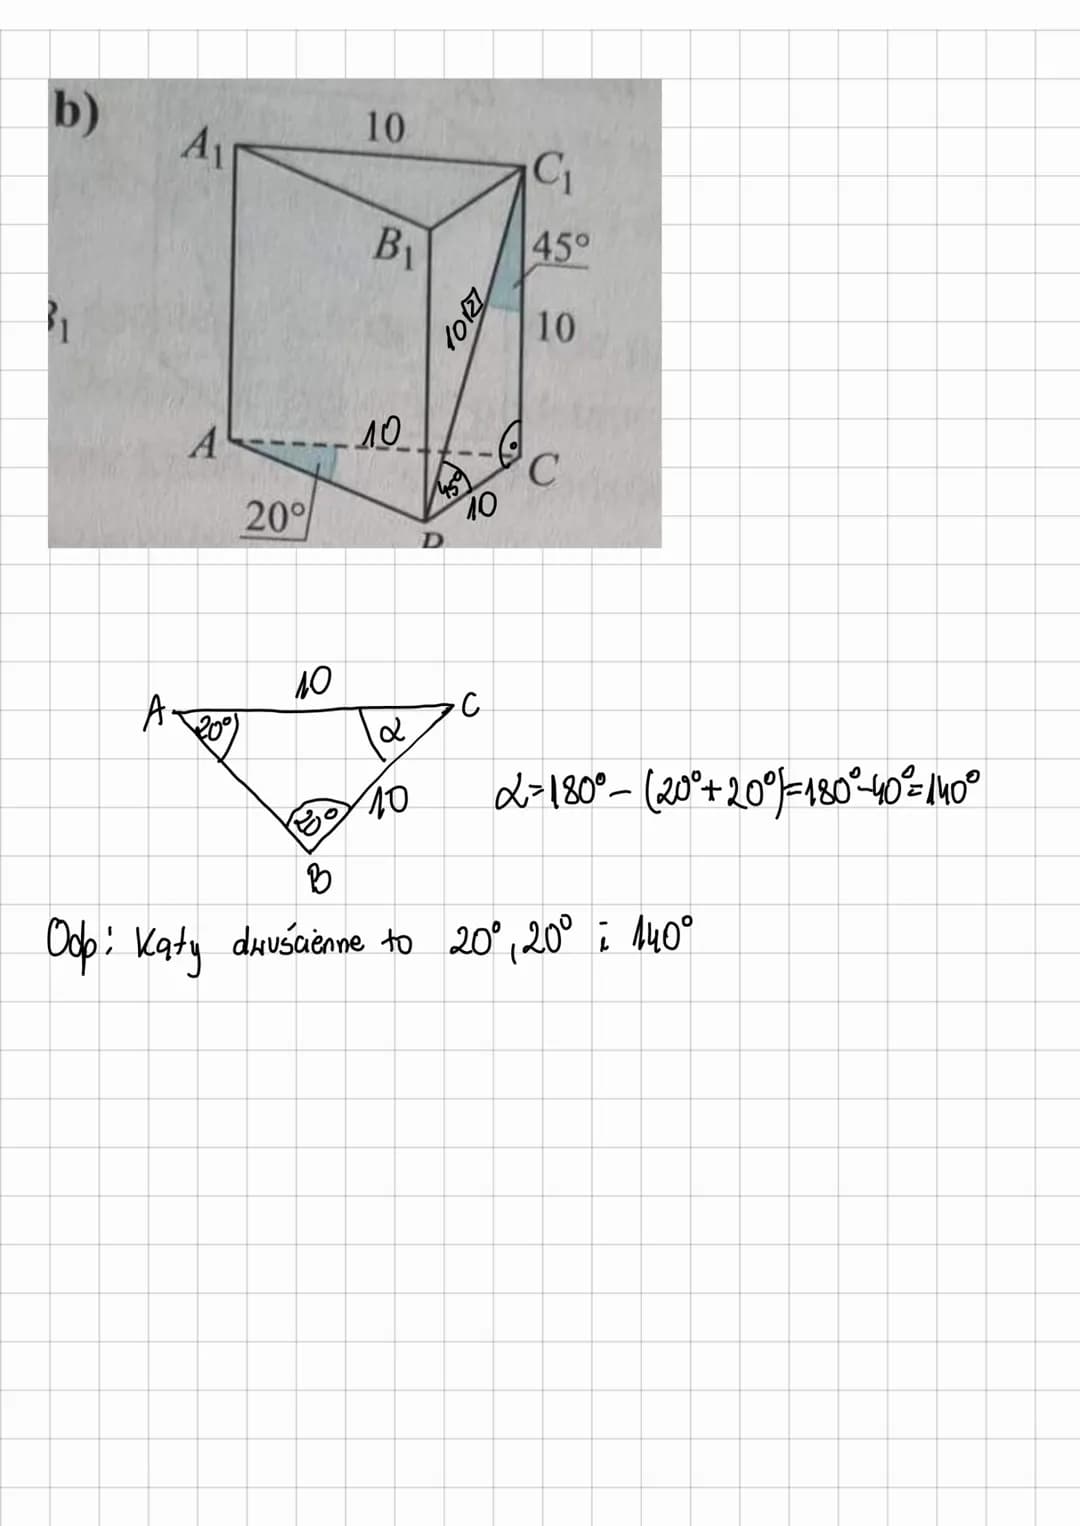 b)
10
A₁
C₁
B₁
45°
10√2
10
10
A
C
45°
10
20°
10
A
C
20°
α
10
α=180°-(20°+20°)=180°-40°=140°
20°
B
Odp: Kąty dwuścienne to 20°, 20° i 140°